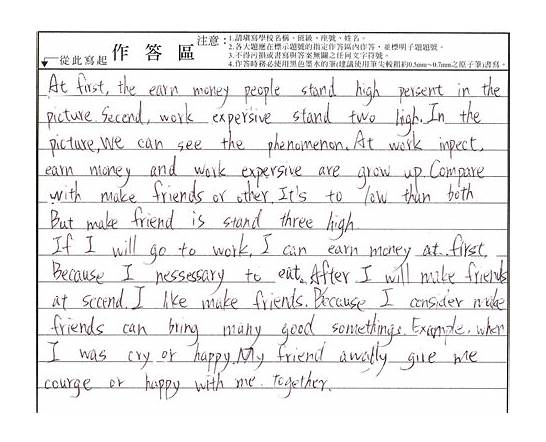 注意：
1.請填寫學校名稱、班級、座號、姓名。
2.各大題應在標示題號的指定作答區內作答，並標明子題題號。
3.不得污損或書寫與答案無關之任何文字符號。
4.作答時務必使用黑色墨水的筆(建議使用筆尖較粗約0.5mm~0.7mm之原子筆)書寫。
從此寫起 作答區
At first, the earn money people stand high persent in the
picture. Second, work expersive stand two high. In the
picture, We can see the phenomenon. At work inpect,
earn money and work expersive are grow up. Compare
with make friends or other. It's to low than both
But make friend is stand three high
If I will go to work, I can earn money at first.
Because I nessessary to eat. After I will make friends
at second. I like make friends. Because I consider make
friends can bring many good somethings. Example. when
I was cry or happy. My friend awally give me
courge or happy with me. together.